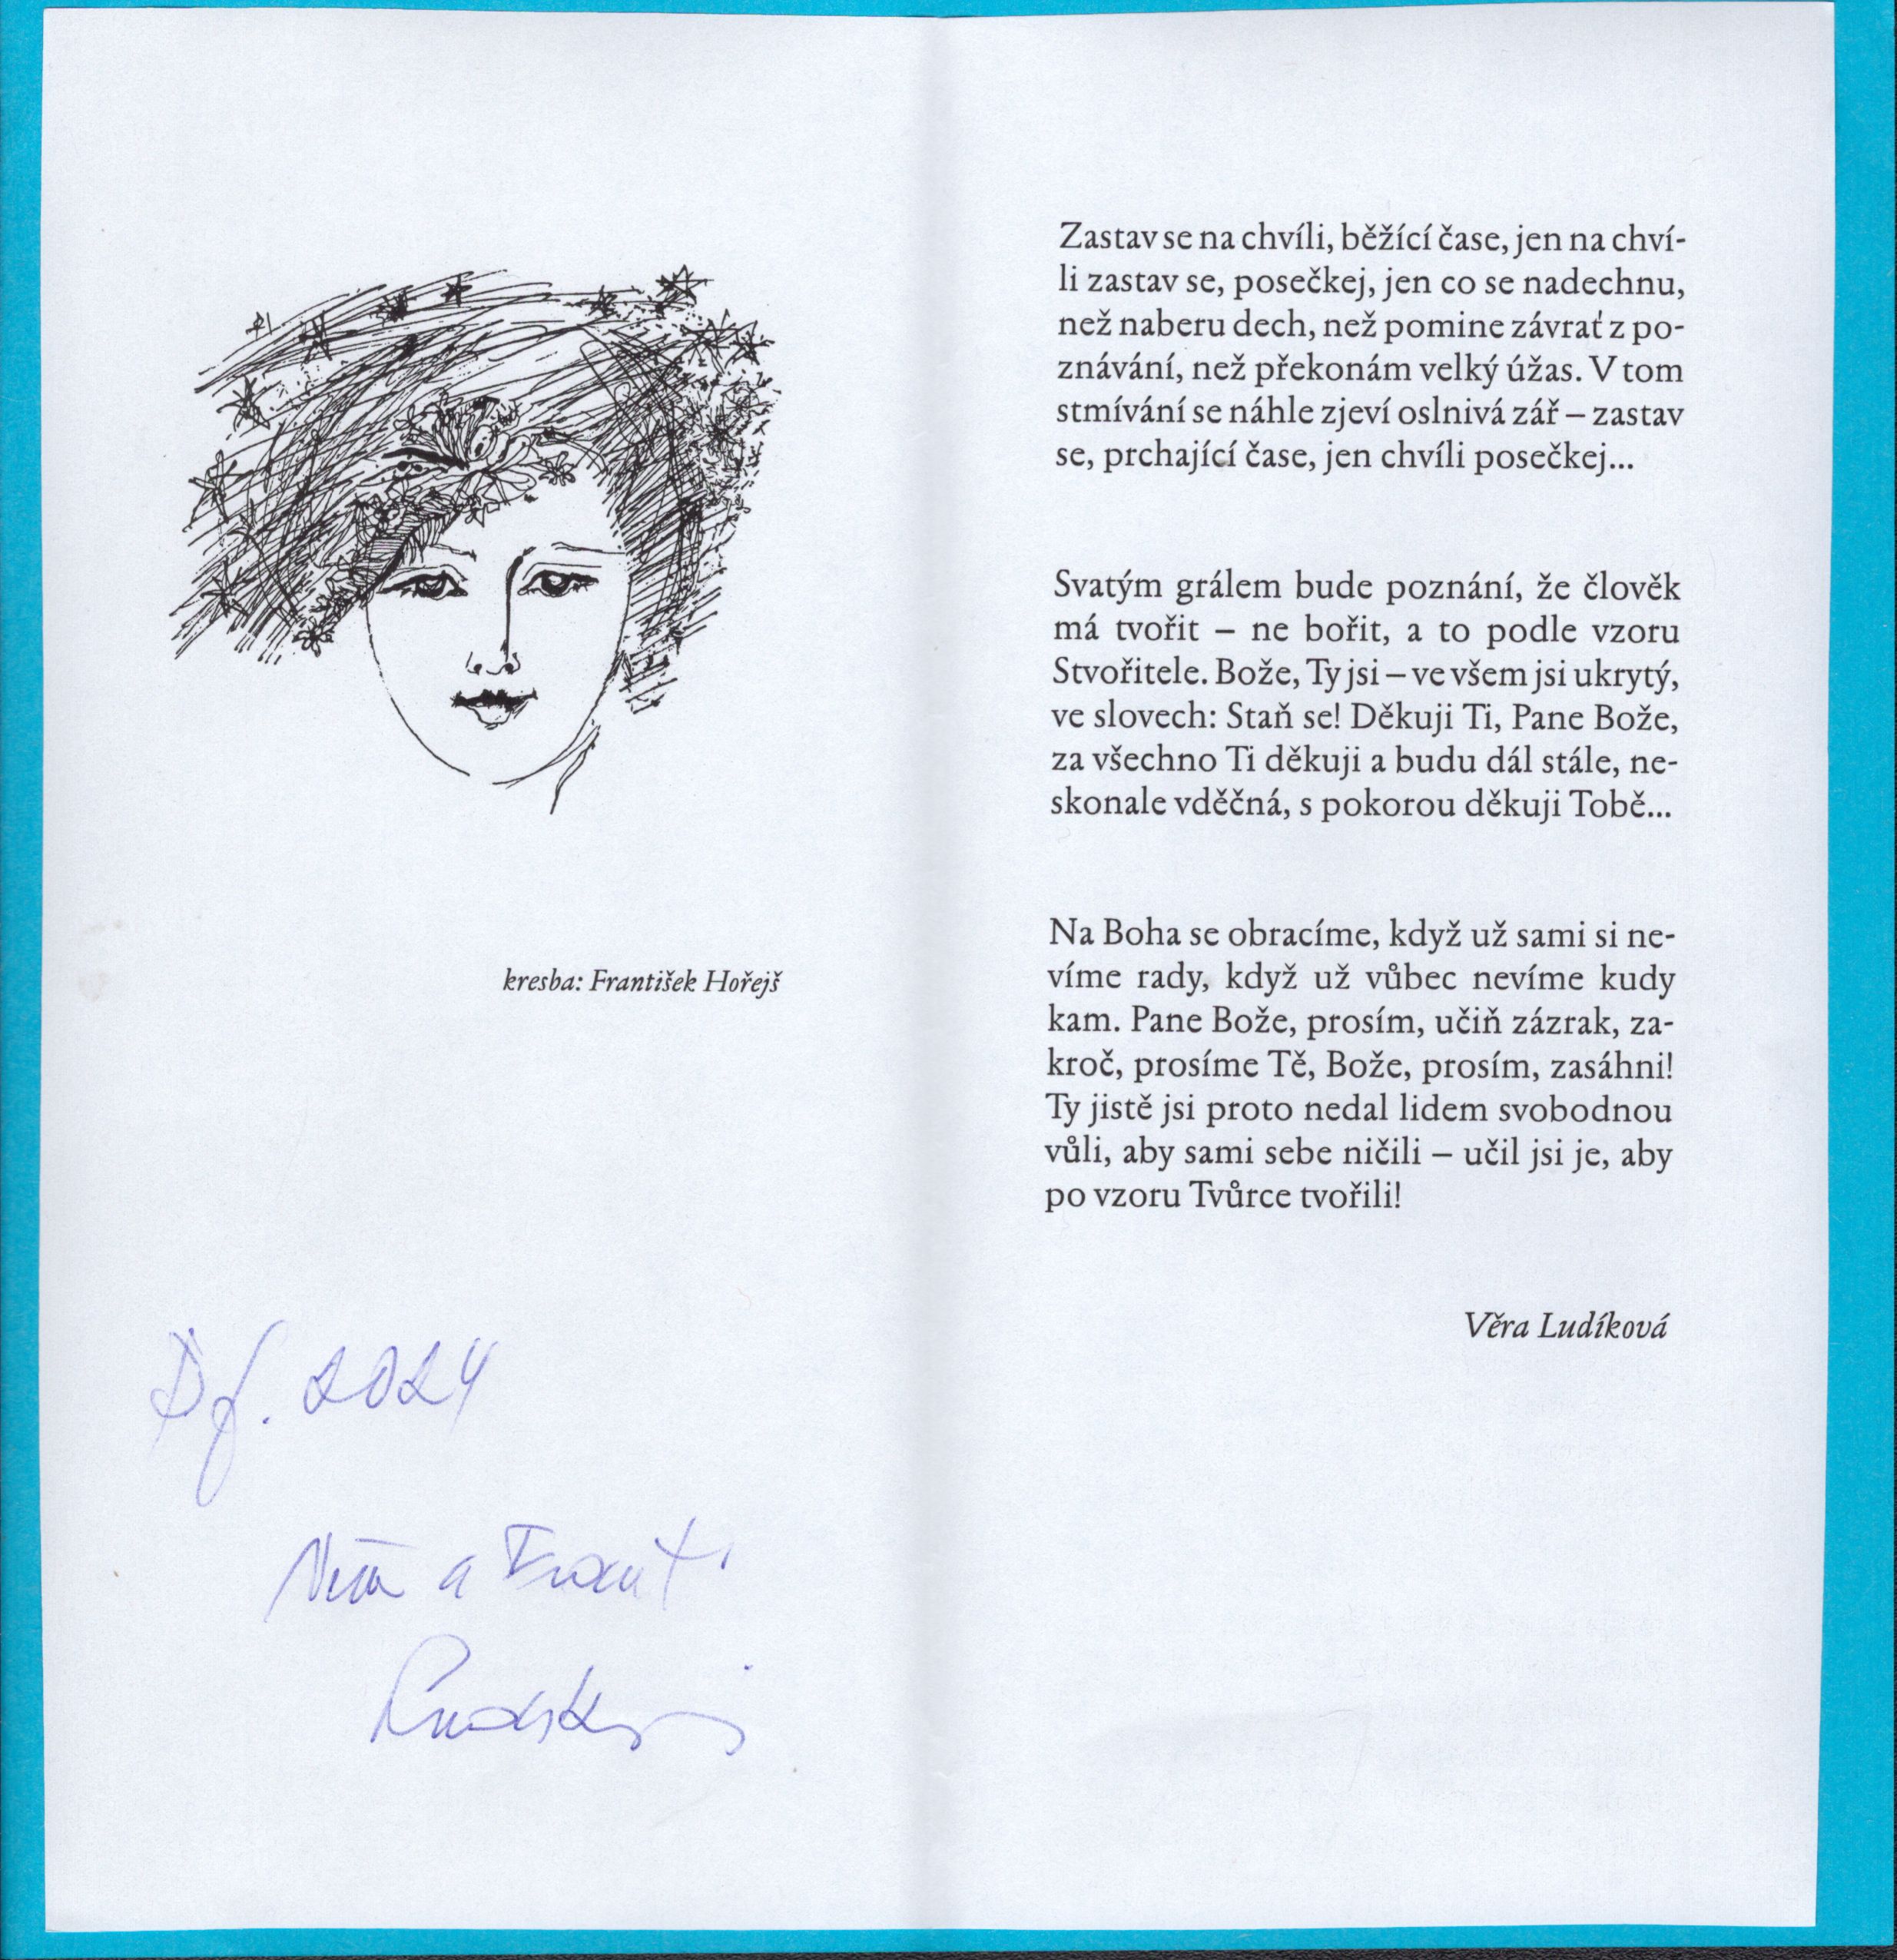 kresba: František Hořejš
2024
a
Zastav se na chvíli, běžící čase, jen na chví-
li zastav se, posečkej, jen co se nadechnu,
než naberu dech, než pomine závrať z po-
znávání, než překonám velký úžas. V tom
stmívání se náhle zjeví oslnivá zář – zastav
se, prchající čase, jen chvíli posečkej...
Svatým grálem bude poznání, že člověk
má tvořit – ne bořit, a to podle vzoru
Stvořitele. Bože, Ty jsi – ve všem jsi ukrytý,
ve slovech: Staň se! Děkuji Ti, Pane Bože,
za všechno Ti děkuji a budu dál stále, ne-
skonale vděčná, s pokorou děkuji Tobě...
Na Boha se obracíme, když už sami si ne-
víme rady, když už vůbec nevíme kudy
kam. Pane Bože, prosím, učiň zázrak, za-
kroč, prosíme Tě, Bože, prosím, zasáhni!
Ty jistě jsi proto nedal lidem svobodnou
vůli, aby sami sebe ničili – učil jsi je, aby
po vzoru Tvůrce tvořili!
Věra Ludíková